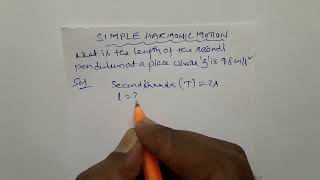 SIMPLE HARMONIC MOTION
What is the length of the seconds
pendulum at a place where 'g' is 9.8 m/s²
Sol Seconds (T) = 2s
l = ?